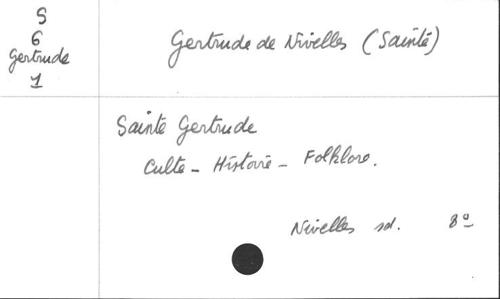 S
6
Gertrude
1
Gertrude de Nivelles (Sainte)
Sainte Gertrude
Culte - Histoire - Folklore.
Nivelles sd. 8º